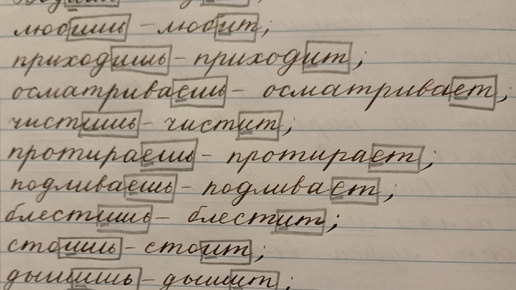 любишь – любит;
приходишь – приходит;
осматриваешь – осматривает;
чистишь – чистит;
протираешь – протирает;
подливаешь – подливает;
блестишь – блестит;
стоишь – стоит;
дышишь – дышит;